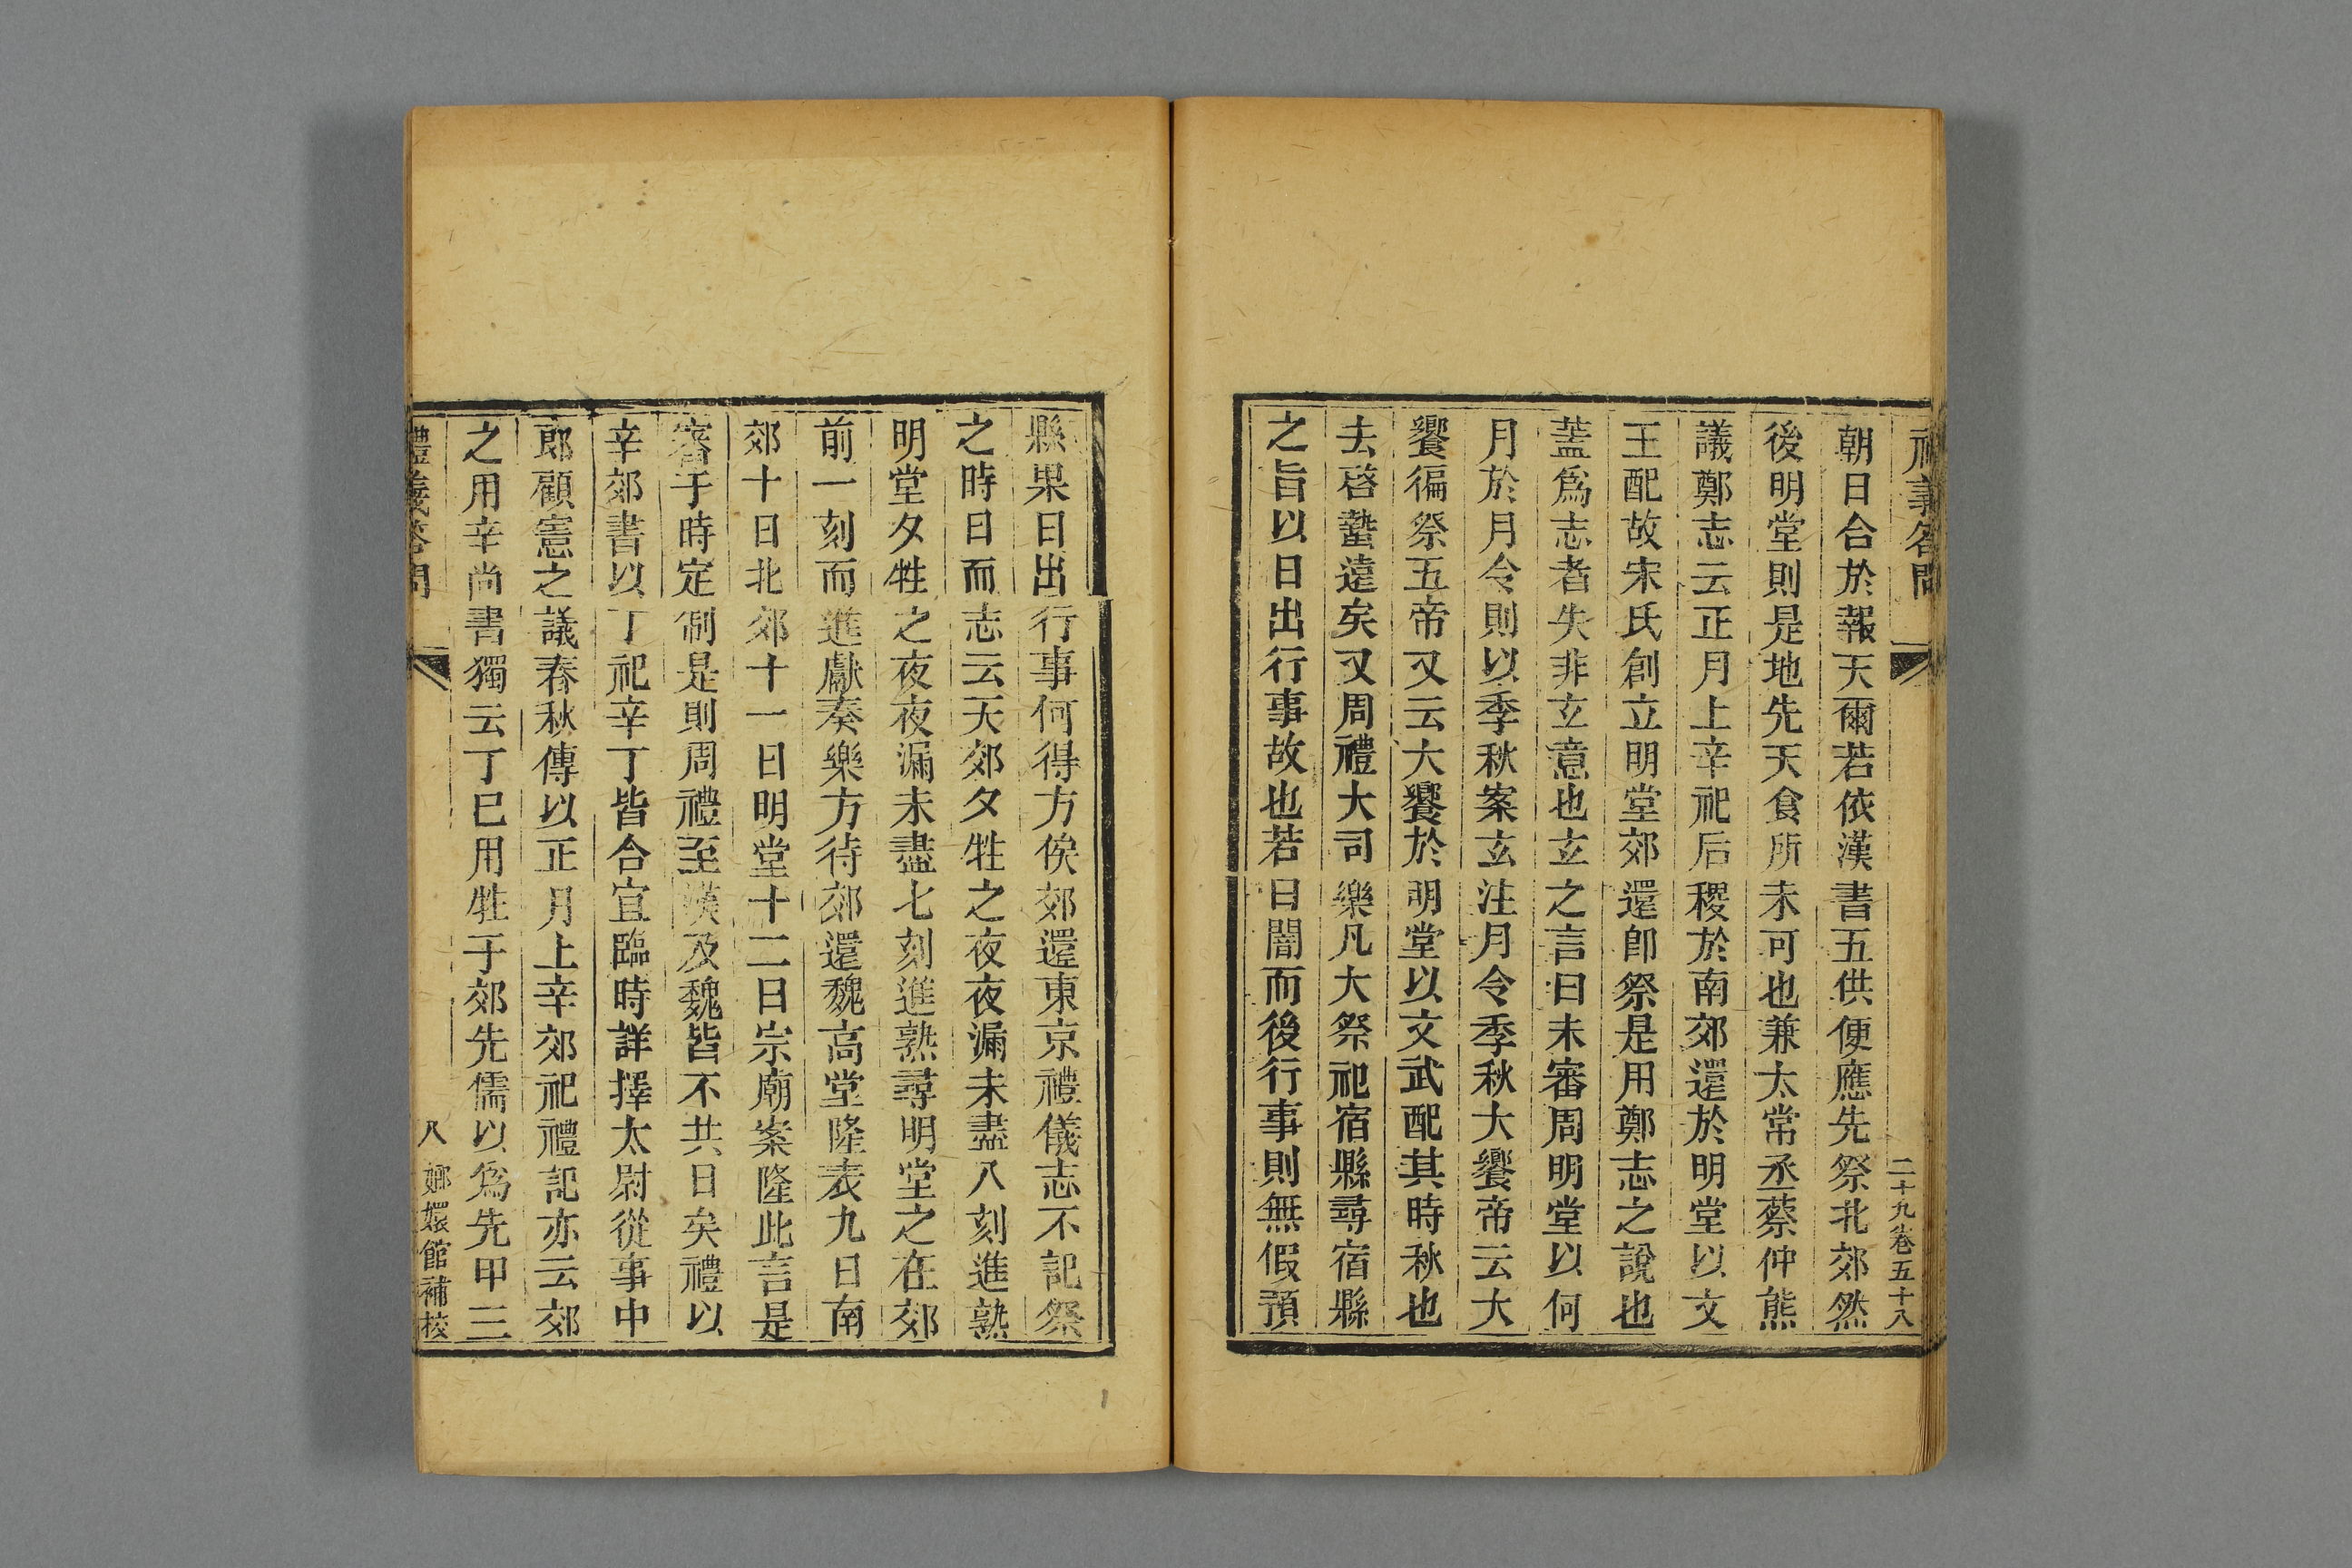 禮義答問
二十九卷五十八
朝日合於報天爾若依漢書五供便應先祭北郊然
後明堂則是地先天食所未可也兼太常丞蔡仲熊
議鄭志云正月上辛祀后稷於南郊還於明堂以文
王配故宋氏創立明堂郊還卽祭是用鄭志之說也
蓋爲志者失非玄意也玄之言曰未審周明堂以何
月於月令則以季秋案玄注月令季秋大饗帝云大
饗徧祭五帝又云大饗於明堂以文武配其時秋也
去啓蟄遠矣又周禮大司樂凡大祭祀宿縣尋宿縣
之旨以日出行事故也若日闇而後行事則無假預
縣果日出行事何得方俟郊還東京禮儀志不記祭
之時日而志云天郊夕牲之夜夜漏未盡八刻進熟
明堂夕牲之夜夜漏未盡七刻進熟尋明堂之在郊
前一刻而進獻奏樂方待郊還魏高堂隆表九日南
郊十日北郊十一日明堂十二日宗廟案隆此言是
審于時定制是則周禮至漢及魏皆不共日矣禮以
辛郊書以丁祀辛丁皆合宜臨時詳擇太尉從事中
郎顧憲之議春秋傳以正月上辛郊祀禮記亦云郊
之用辛尚書獨云丁巳用牲于郊先儒以爲先甲三
禮義答問
八
嫏嬛館補校